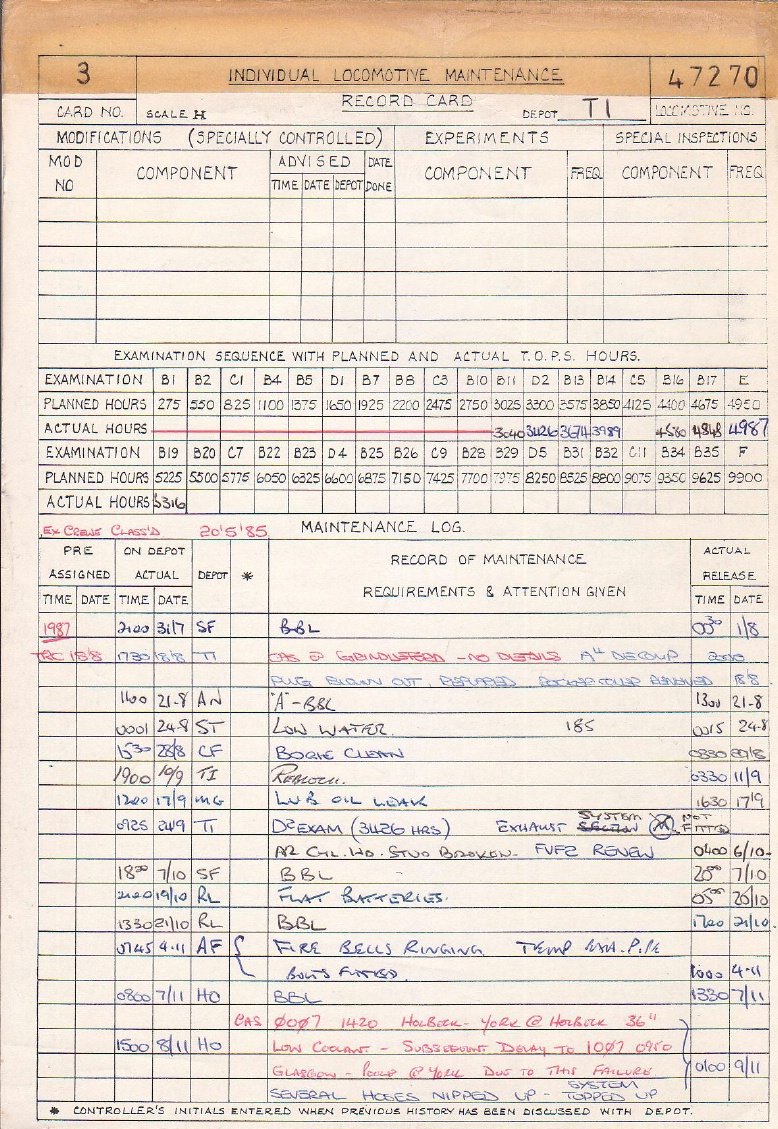 3 INDIVIDUAL LOCOMOTIVE MAINTENANCE 47270
RECORD CARD
CARD NO. SCALE H DEPOT TI LOCOMOTIVE NO.
MODIFICATIONS (SPECIALLY CONTROLLED) EXPERIMENTS SPECIAL INSPECTIONS
MOD NO COMPONENT ADVISED DATE DONE COMPONENT FREQ COMPONENT FREQ
TIME DATE DEPOT
EXAMINATION SEQUENCE WITH PLANNED AND ACTUAL T.O.P.S. HOURS.
EXAMINATION B1 B2 C1 B4 B5 D1 B7 B8 C3 B10 B11 D2 B13 B14 C5 B16 B17 E
PLANNED HOURS 275 550 825 1100 1375 1650 1925 2200 2475 2750 3025 3300 3575 3850 4125 4400 4675 4950
ACTUAL HOURS 3040 3426 3694 3989 4580 4848 4987
EXAMINATION B19 B20 C7 B22 B23 D4 B25 B26 C9 B28 B29 D5 B31 B32 C11 B34 B35 F
PLANNED HOURS 5225 5500 5775 6050 6325 6600 6875 7150 7425 7700 7975 8250 8525 8800 9075 9350 9625 9900
ACTUAL HOURS 5316
EX CREWE CLASS'D 20'5'85 MAINTENANCE LOG.
PRE ASSIGNED ON DEPOT ACTUAL DEPOT * RECORD OF MAINTENANCE ACTUAL RELEASE
REQUIREMENTS & ATTENTION GIVEN
TIME DATE TIME DATE TIME DATE
1987 2100 31/7 SF BBL 0030 1/8
18/8 1730 18/8 TI CAS @ GRINDLEFORD - NO DETAILS A4 DECOMP 2000
PLUG BLOWN OUT. REPLACED ROCKER COVER RENEWED 18/8
1100 21-8 AN "A"-BBL 1300 21-8
0001 24-8 ST LOW WATER. 185 0015 24-8
1530 28/8 CF BOGIE CLEAN 0330 29/8
1900 10/9 TI 0330 11/9
1200 17/9 MG LUB OIL LEAK 1630 17/9
0925 24/9 TI D2 EXAM (3426 HRS) EXHAUST SECTION SYSTEM NOT FITTED
A2 CYL. HD. STUD BROKEN - RENEW 0400 6/10
1800 7/10 SF BBL 2000 7/10
2100 19/10 RL FLAT BATTERIES. 0500 20/10
1330 21/10 RL BBL 1700 21/10
0145 4-11 AF FIRE BELLS RINGING TEMP
BOLTS FITTED. 1000 4-11
0800 7/11 HO BBL 1330 7/11
CAS 0O07 1420 HOLBECK - YORK @ HOLBECK 36"
1500 8/11 HO LOW COOLANT - SUBSEQUENT DELAY TO 1O07 0950
GLASGOW - POOLE @ YORK DUE TO THIS FAILURE 0100 9/11
SEVERAL HOSES NIPPED UP - SYSTEM TOPPED UP
* CONTROLLER'S INITIALS ENTERED WHEN PREVIOUS HISTORY HAS BEEN DISCUSSED WITH DEPOT.